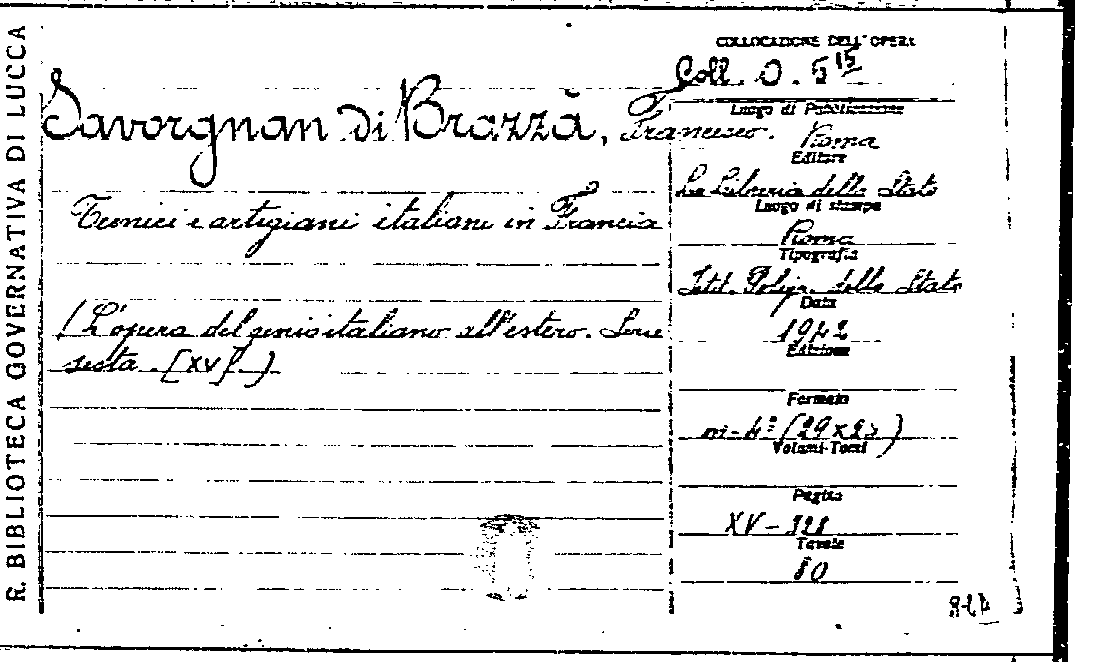 R. BIBLIOTECA GOVERNATIVA DI LUCCA
Savorgnan di Brazzà, Francesco.
Tecnici e artigiani italiani in Francia
(L'opera del genio italiano all'estero. Serie
sesta. [XV]. )
COLLOCAZIONE DELL'OPERA
Coll. O. 5 15
Luogo di Pubblicazione
Roma
Editore
La Libreria dello Stato
Luogo di stampa
Roma
Tipografia
Istit. Poligr. dello Stato
Data
1942
Edizione
Formato
in-4º (29x23)
Volumi-Tomi
Pagine
XV-328
Tavole
80